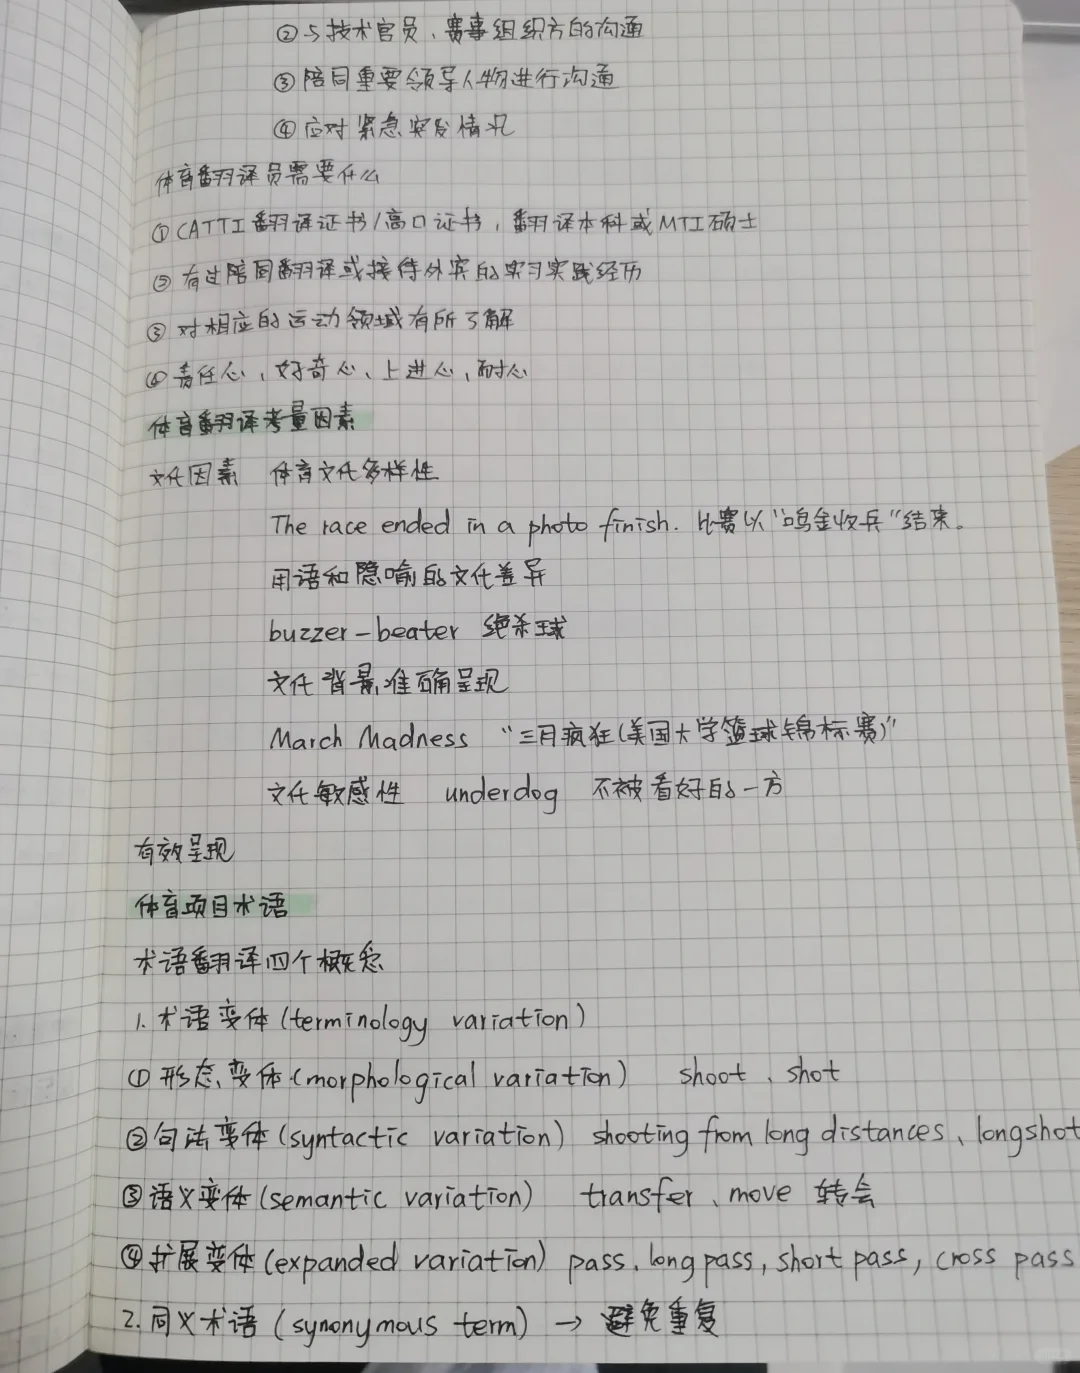 ②与技术官员、赛事组织方的沟通
③陪同重要领导人物进行沟通
④应对紧急突发情况
体育翻译员需要什么
①CATTI翻译证书/高口证书，翻译本科或MTI硕士
②有过陪同翻译或接待外宾的实习实践经历
③对相应的运动领域有所了解
④责任心、好奇心、上进心、耐心
体育翻译考量因素
文化因素 体育文化多样性
The race ended in a photo finish. 比赛以“鸣金收兵”结束。
用语和隐喻的文化差异
buzzer-beater 绝杀球
文化背景准确呈现
March Madness “三月疯狂(美国大学篮球锦标赛)”
文化敏感性 underdog 不被看好的一方
有效呈现
体育项目术语
术语翻译四个概念
1. 术语变体(terminology variation)
①形态变体(morphological variation) shoot、shot
②句法变体(syntactic variation) shooting from long distances、longshot
③语义变体(semantic variation) transfer、move 转会
④扩展变体(expanded variation) pass、long pass, short pass, cross pass
2. 同义术语(synonymous term) → 避免重复